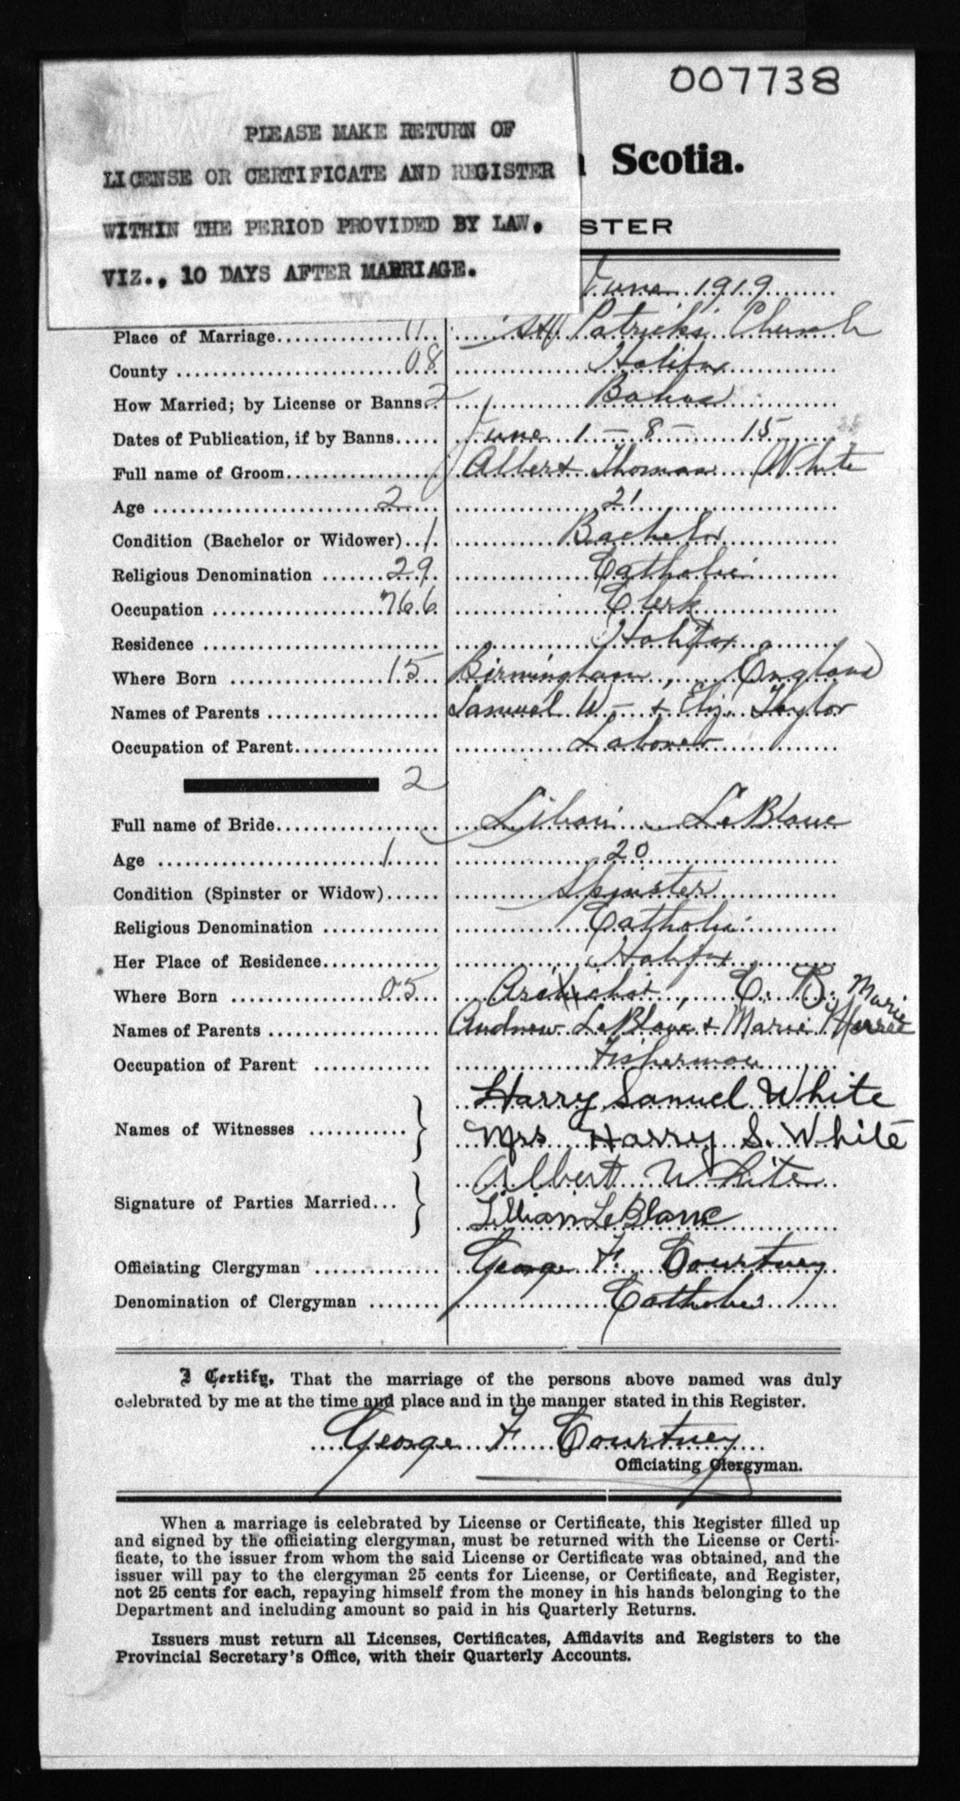 007738
PLEASE MAKE RETURN OF
LICENSE OR CERTIFICATE AND REGISTER
WITHIN THE PERIOD PROVIDED BY LAW.
VIZ., 10 DAYS AFTER MARRIAGE.
Scotia.
STER
June 1919
Place of Marriage 11 St Patricks Church
County 08 Halifax
How Married; by License or Banns. 2 Banns
Dates of Publication, if by Banns June 1 - 8 - 15
Full name of Groom Albert Thomas White
Age 2 21
Condition (Bachelor or Widower) 1 Bachelor
Religious Denomination 29 Catholic
Occupation 766 Clerk
Residence Halifax
Where Born 15 Birmingham, England
Names of Parents Samuel W - + Eliz. Taylor
Occupation of Parent Laborer
2
Full name of Bride Lilian LeBlanc
Age 1 20
Condition (Spinster or Widow) Spinster
Religious Denomination Catholic
Her Place of Residence Halifax
Where Born 05 Arichat, C. B.
Marie
Names of Parents Andrew LeBlanc + Marie
Occupation of Parent Fisherman
Harry Samuel White
Names of Witnesses }
Mrs Harry S. White
Albert White
Signature of Parties Married }
Lillian LeBlanc
Officiating Clergyman George F. Courtney
Denomination of Clergyman Catholic
I Certify, That the marriage of the persons above named was duly
celebrated by me at the time and place and in the manner stated in this Register.
George F Courtney
Officiating Clergyman.
When a marriage is celebrated by License or Certificate, this Register filled up
and signed by the officiating clergyman, must be returned with the License or Certi-
ficate, to the issuer from whom the said License or Certificate was obtained, and the
issuer will pay to the clergyman 25 cents for License, or Certificate, and Register,
not 25 cents for each, repaying himself from the money in his hands belonging to the
Department and including amount so paid in his Quarterly Returns.
Issuers must return all Licenses, Certificates, Affidavits and Registers to the
Provincial Secretary's Office, with their Quarterly Accounts.